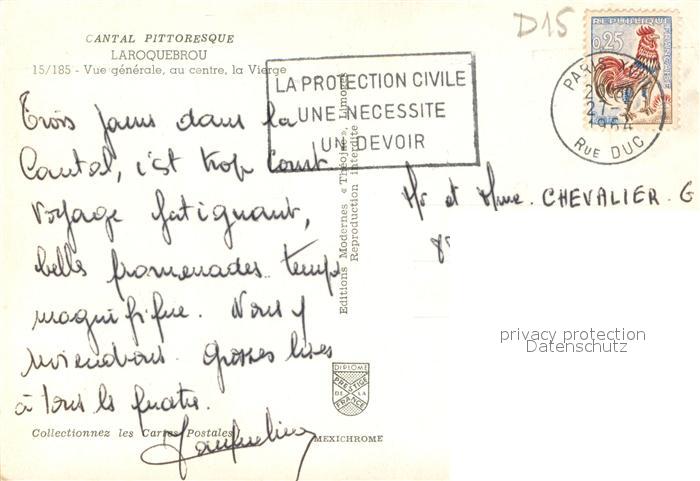 CANTAL PITTORESQUE
LAROQUEBROU
15/185 - Vue générale, au centre, la Vierge
D15
REPUBLIQUE
FRANÇAISE
0,25
LA PROTECTION CIVILE
UNE NECESSITE
UN DEVOIR
PARIS
1964
RUE DUC
Trois jours dans le
Cantal, c'est trop court
Voyage fatignant,
belles promenades temps
magnifique. Nous y
reviendrons. Grosses bises
à tous les quatre.
Jacqueline
Mr et Mme. CHEVALIER. G
Editions Modernes « Théojac », Limoges
Reproduction interdite
DIPLOME
PRESTIGE
DE LA
FRANCE
Collectionnez les Cartes Postales !
MEXICHROME
privacy protection
Datenschutz